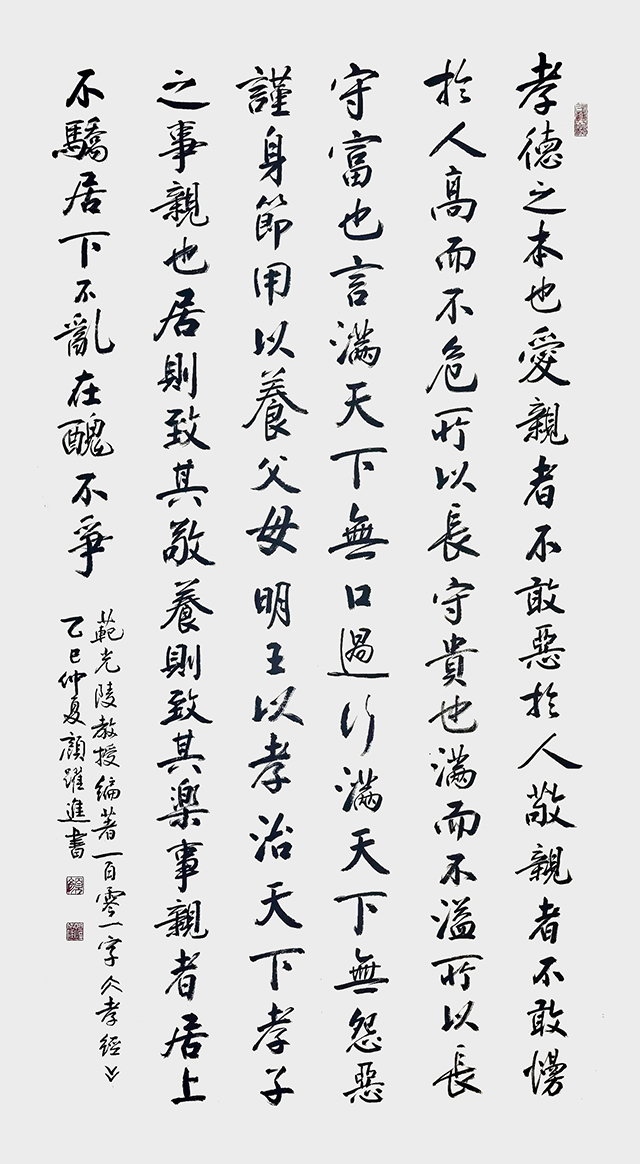 孝德之本也愛親者不敢惡於人敬親者不敢慢
於人高而不危所以長守貴也滿而不溢所以長
守富也言滿天下無口過行滿天下無怨惡
謹身節用以養父母明王以孝治天下孝子
之事親也居則致其敬養則致其樂事親者居上
不驕居下不亂在醜不爭
範光陵教授編著一百零一字《孝經》
乙巳仲夏顏躍進書